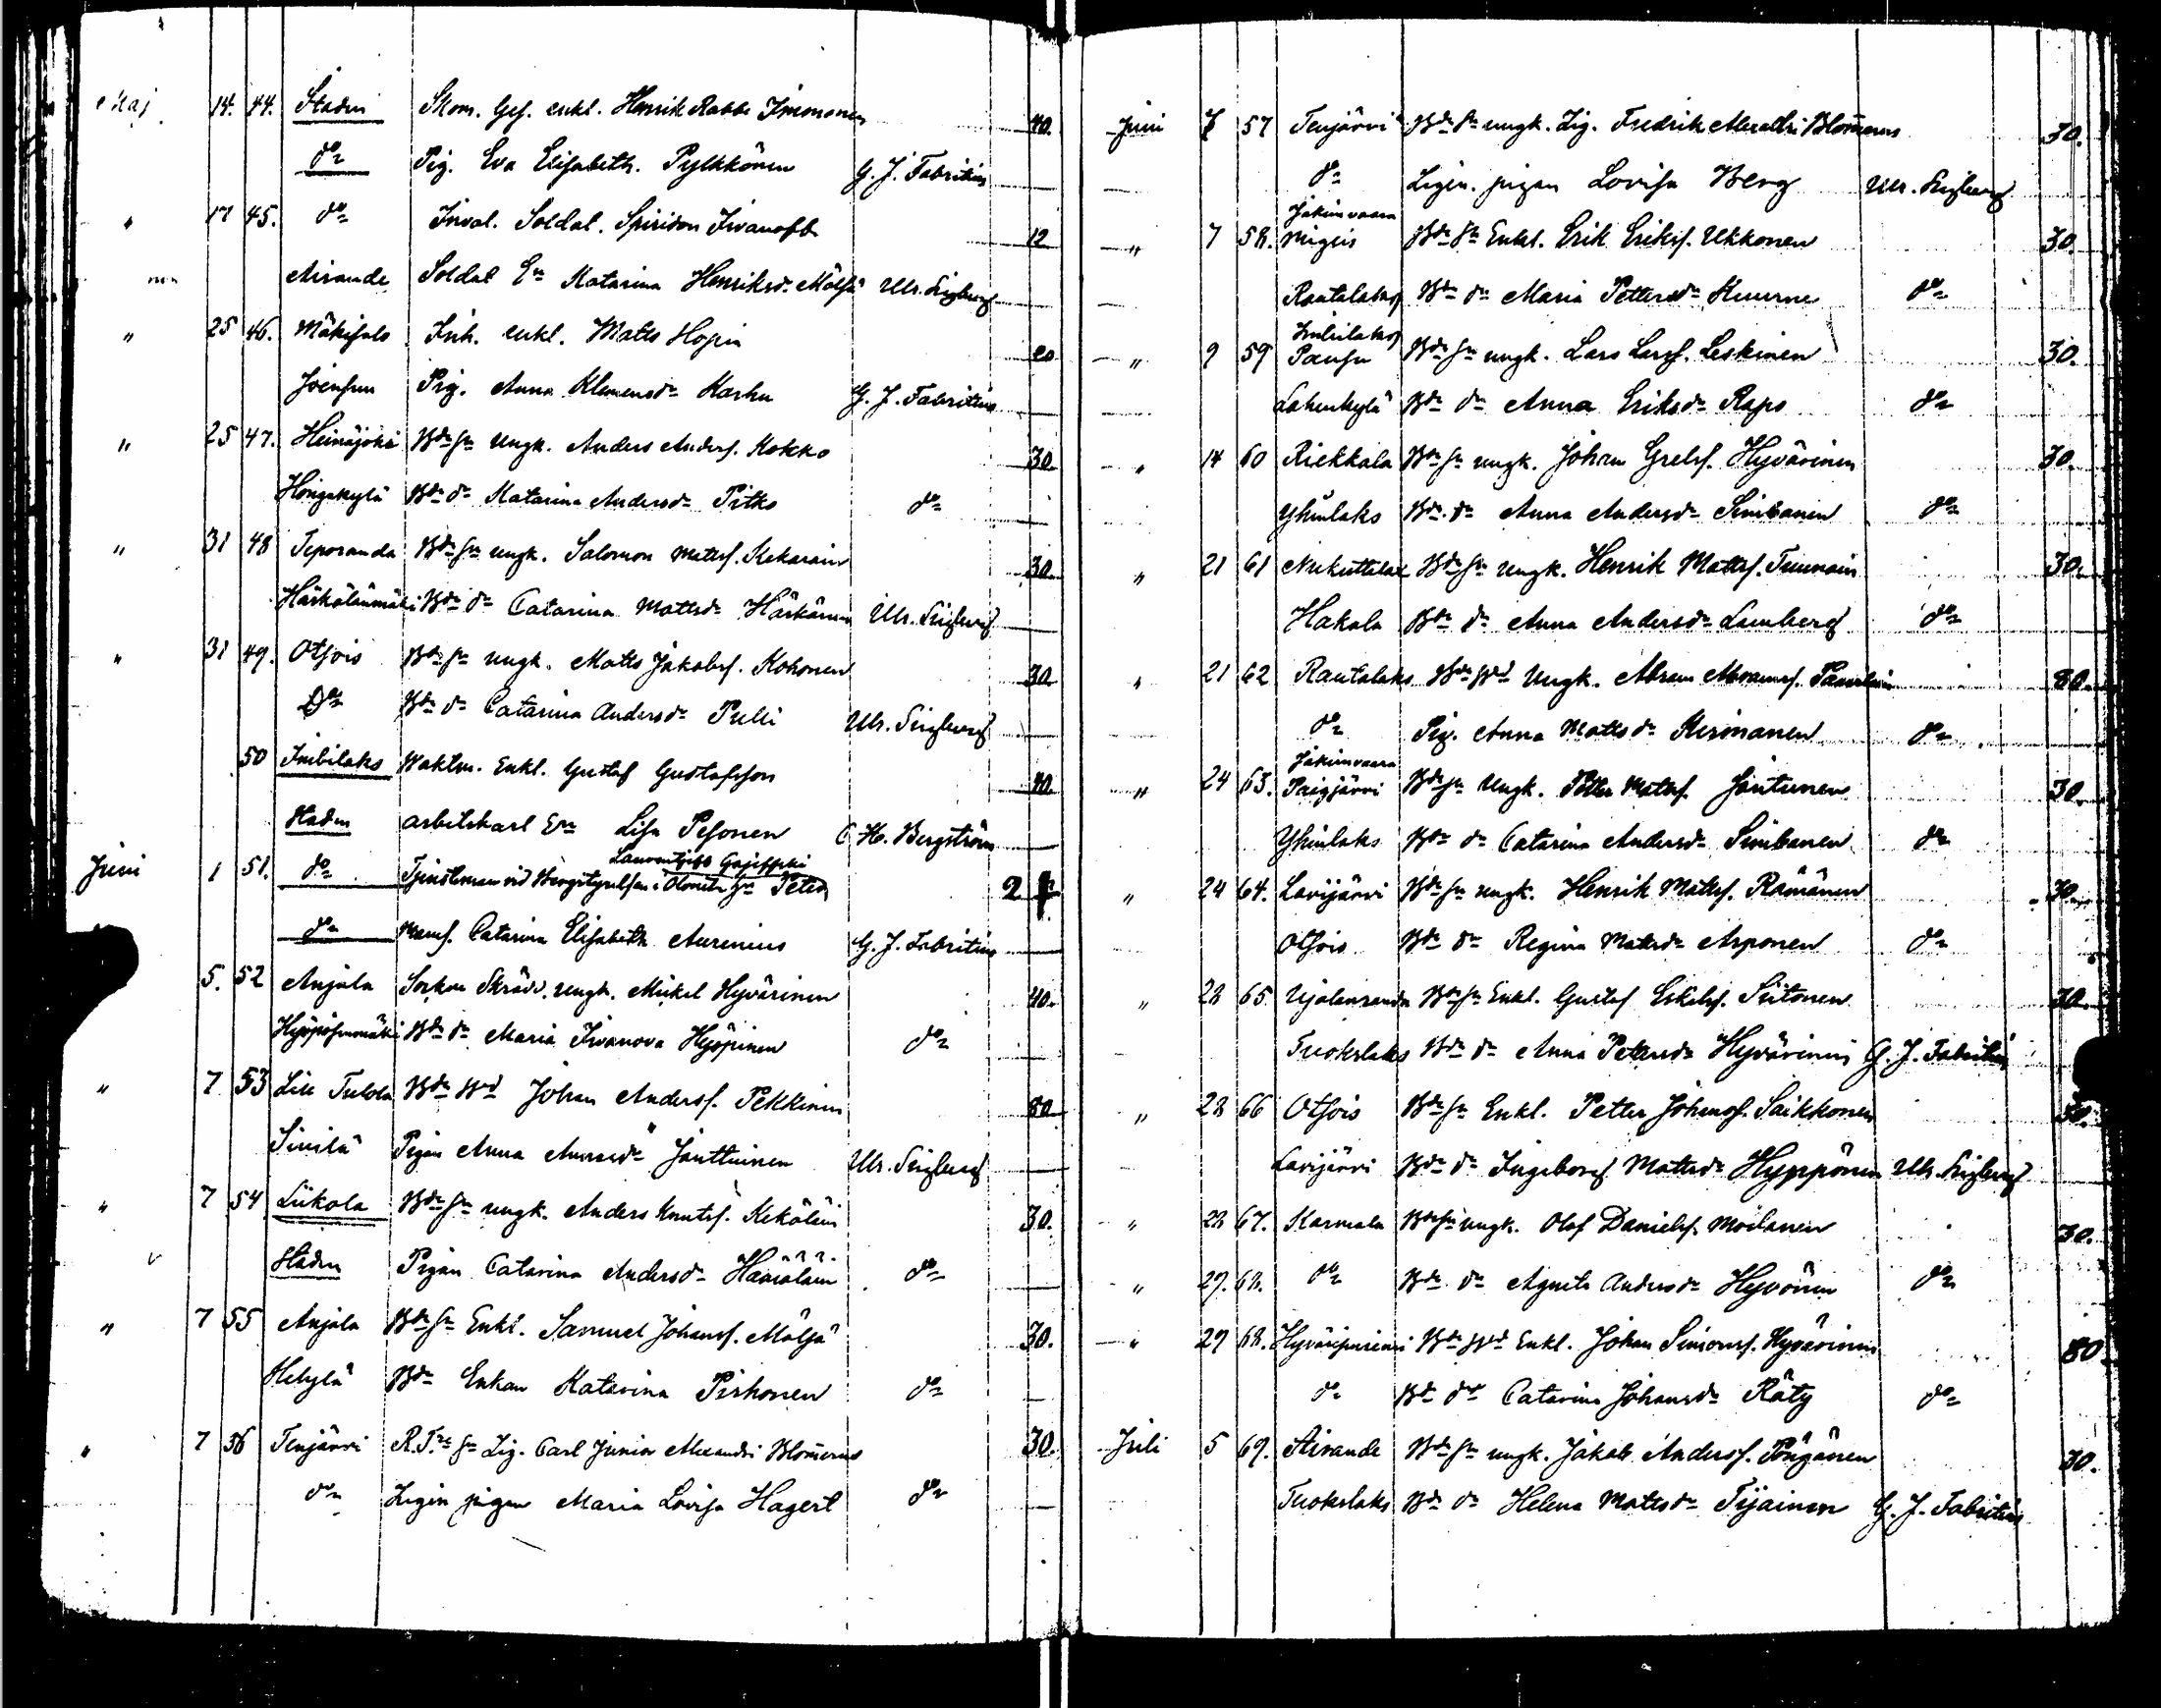 Maj 14. 44. Staden Skom. Ges. enkl. Henrik Rabbe Immonen 40.
do Pig. Eva Elisabeth. Pylkkönen G. J. Fabritius
" 17 45. do Inval. Soldat. Spiridon Ivanoff 12
Airande Soldat En Katarina Henriksdr Mölsä Ulr. Sirgberg
" 25 46. Mäkisalo Inh. enkl. Matts Hopia 20
Joensuu Pig. Anna Klemensdr Karhu G. J. Fabritius
" 25 47. Heinäjoki Bde sn Ungk. Anders Anders. Kokko 30
Hongakylä Bde dr Katarina Andersdr Pitko do
" 31 48 Teporanda Bde sn ungk. Salomon Matts. Kekäräin 30
Härkälänmäki Bde dr Catarina Mattsdr Härkänen Ulr.
" 31 49. Otsois Bde sn ungk. Matts Jakobs. Kohonen 30
Do Bde dr Catarina Andersdr Pulli Ulr.
50 Imbilaks Waktm. Enkl. Gustaf Gustafsson 40
Staden arbetskarl En Lisa Pesonen C. H. Bergström
Juni 1 51. do Tjensteman vid Bergstyrelsen i Olonetz Hr Peter 2
do Mams. Catarina Elisabeth Aurenius G. J. Fabritius
5. 52 Anjala Sockne Skrädd. ungk. Mickel Hyvärinen 40.
Bde dr Maria Ivanova Hyöpinen do
" 7 53 Lill Tulola Bde Wd Johan Anders. Pekkinen 80
Sinilä Pigan Anna Jänttuinen Ulr.
" 7 54 Liikola Bde sn ungk. Anders Knuts. Kekäläin 30.
Staden Pigan Catarina Andersdr Hämäläin do
" 7 55 Anjala Bde sn Enkl. Samuel Johans. Mölsä 30.
Helylä Bde Enkan Katarina Pirhonen do
" 7 56 Tenjärvi Lig. Carl Junior Alexandri Blomerus 30.
do Ligin pigan Maria Lovisa Hagert do
Juni 7 57 Tenjärvi Bde sn ungk. Lig. Fredrik Alexandri Blomerus 30.
do Ligin. pigan Lovisa Berg Ulr.
" 7 58. Jakimvaara Miglis Bde sn Enkl. Erik Eriks. Ukkonen 30
Rautalaks Bde dr Maria Pettersdr Kuurne do
" 9 59 Imbilaks Pausu Bde sn ungk. Lars Lars. Leskinen 30.
Lahenkylä Bde dr Anna Eriksdr Rapo do
" 14 60 Riekkala Bde sn ungk. Johan Grels. Hyvärinen 30.
Yhinlaks Bde dr Anna Andersdr Simbanen do
" 21 61 Nukuttalax Bde sn ungk. Henrik Matts. Tuunain 30.
Hakala Bde dr Anna Andersdr Lamberg do
" 21 62 Rautalaks Bde Wd Ungk. Abram Abrams. 80.
do Pig. Anna Mattsdr Kirmanen do
" 24 63. Jakimvaara Paigjärvi Bde sn Ungk. Petter Matts. Jantunen 30
Yhinlaks Bde dr Catarina Andersdr Simbanen do
" 24 64. Lavijärvi Bde sn ungk. Henrik Matts. Römänen 30.
Otsois Bde dr Regina Mattsdr Arponen do
" 28 65. Ujolanranda Bde sn Enkl. Gustaf Eskels. Siitonen 30.
Tuokslaks Bde dr Anna Petersdr Hyvärinen G. J. Fabritius
" 28 66 Otsois Bde sn Enkl. Petter Johans. Saikkonen 30.
Lavijärvi Bde dr Ingeborg Mattsdr Hyppönen Ulr.
" 28 67. Karmala Bde sn ungk. Olof Daniels. Moilanen 30.
" 29. 68. do Bde dr Agneta Andersdr Hyvönen do
" 29 68. Bde Wd Enkl. Johan Simons. Hyvärinen 80
do Bde dr Catarina Johansdr Räty do
Juli 5 69. Airande Bde sn ungk. Jakob Anders. Pöngänen 30.
Tuokslaks Bde dr Helena Mattsdr Tijainen G. J. Fabritius